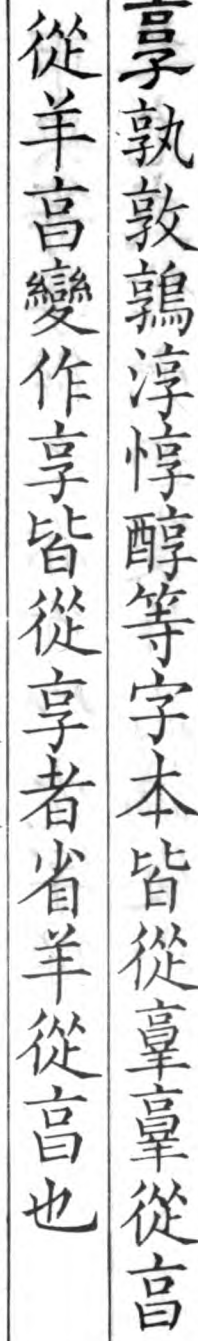 享孰敦鶉淳惇醇等字本皆從𦎫𦎫從亯
從羊亯變作享皆從享者省羊從亯也